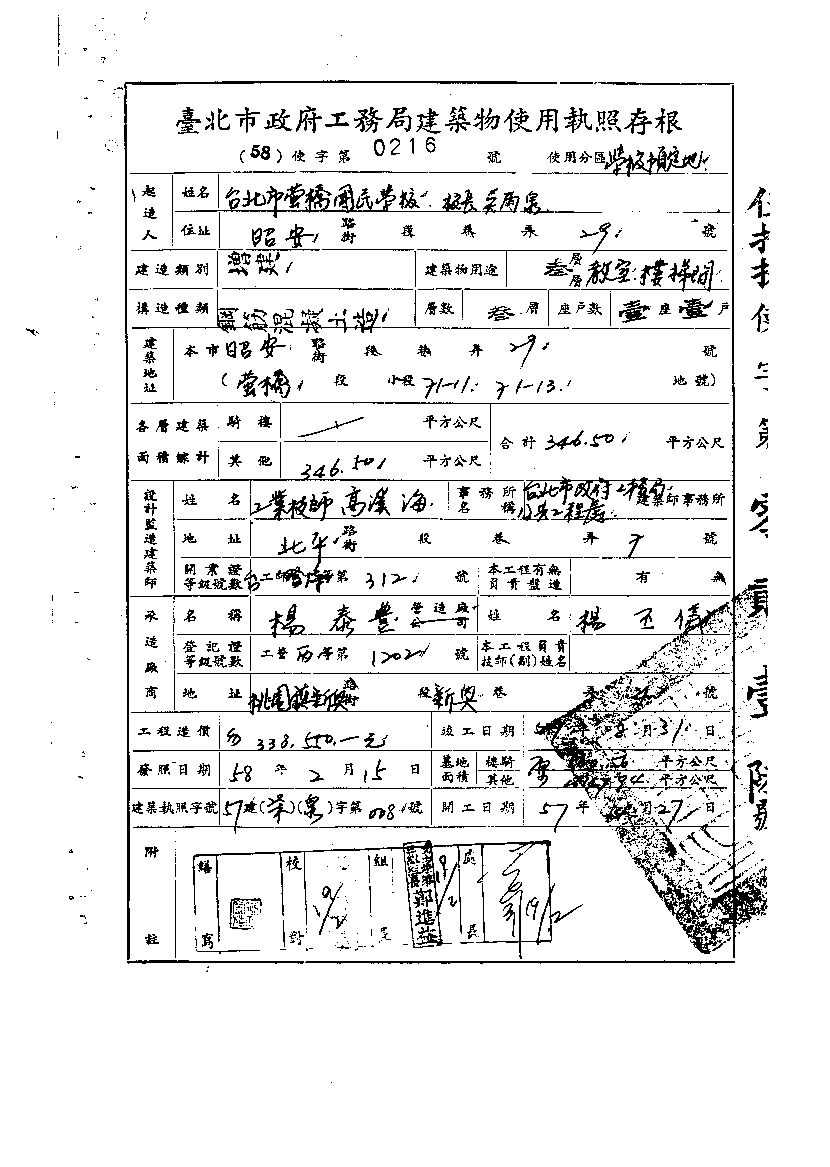 臺北市政府工務局建築物使用執照存根
(58)使字第 0216 號 使用分區 學校預定地
起造人 姓名 台北市螢橋國民學校 校長
住址 昭安 路街 段 巷 弄 29 號
建造類別 增建 建築物用途 叁層 教室 樓梯間
構造種類 鋼筋混凝土造 層數 叁 層 座戶數 壹 座 壹 戶
建築地址 本市 昭安 路街 段 巷 弄 29 號
(螢橋 段 小段 71-11 71-13 地號)
各層建築面積綜計 騎樓 平方公尺 合計 346.50 平方公尺
其他 346.50 平方公尺
設計監造建築師 姓名 工業技師 高溪海 事務所名稱 台北市政府工務局公共工程處 建築師事務所
地址 北平 路街 段 巷 弄 7 號
開業證等級號數 台工師 字第 312 號 本工程有無負責監造 有 無
承造廠商 名稱 楊泰豐 營造廠公司 姓名 楊丕信
登記證等級號數 工營丙等第 1202 號 本工程負責技師(副)姓名
地址 桃園鎮新興 路街 段 新興 巷 弄 號
工程造價 338.550.-元 竣工日期 年 8 月 31 日
發照日期 58 年 2 月 15 日 基地面積 樓騎 平方公尺
其他 平方公尺
建築執照字號 57建( )( )字第 008 號 開工日期 57 年 月 27 日
附註
繕寫 校對 19/2 組長 鄭進益 19/2 處長 19/2
使字第零貳壹陸號